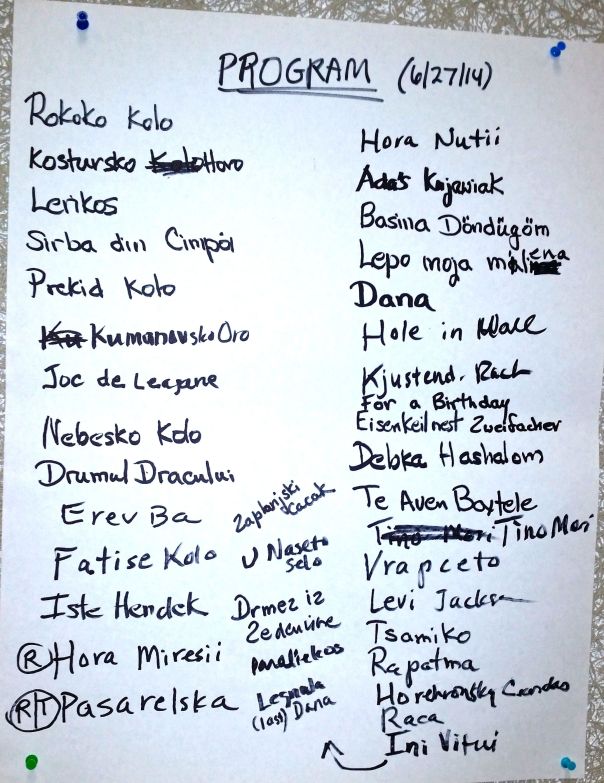 PROGRAM (6/27/14)
Rokoko Kolo
Kostursko Horo
Lerikos
Sirba din Cimpoi
Prekid Kolo
Kumanovsko Oro
Joc de Leagane
Nebesko Kolo
Drumul Dracului
Erev Ba
Fatise Kolo
Iste Hendek
(R) Hora Miresii
(R)(T) Pasarelska
Zaplanjski
Cacak
U Naseto
selo
Drmez iz
Zedenine
Panaliekos
Lesnala
(last) Dana
Hora Nutii
Ada's Kujawiak
Basina Döndügöm
Lepo moja milena
Dana
Hole in Wall
Kjustend. Rach
For a Birthday
Eisenkeilnest Zweifacher
Debka Hashalom
Te Aven Baxtele
Tino Mori
Vrapceto
Levi Jackson
Tsamiko
Rapatma
Horehronsky Csardas
Raca
Ini Vitui